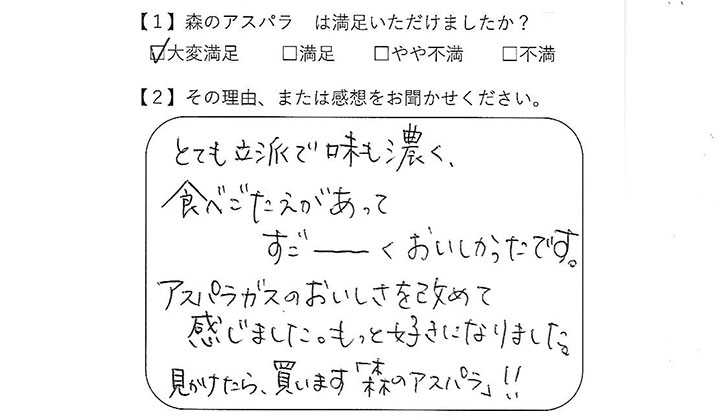 【１】森のアスパラ　は満足いただけましたか？
☑大変満足　□満足　□やや不満　□不満
【２】その理由、または感想をお聞かせください。
とても立派で味も濃く、
食べごたえがあって
すごーーく おいしかったです。
アスパラガスのおいしさを改めて
感じました。もっと好きになりました。
見かけたら、買います「森のアスパラ」!!